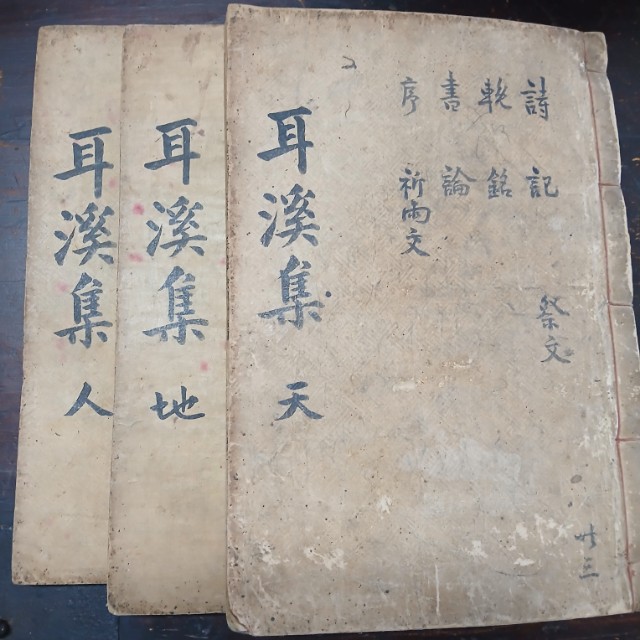 詩 記
祭文
輓 銘
書 論
序 祈雨文
耳溪集 天
卄三
耳溪集 地
耳溪集 人